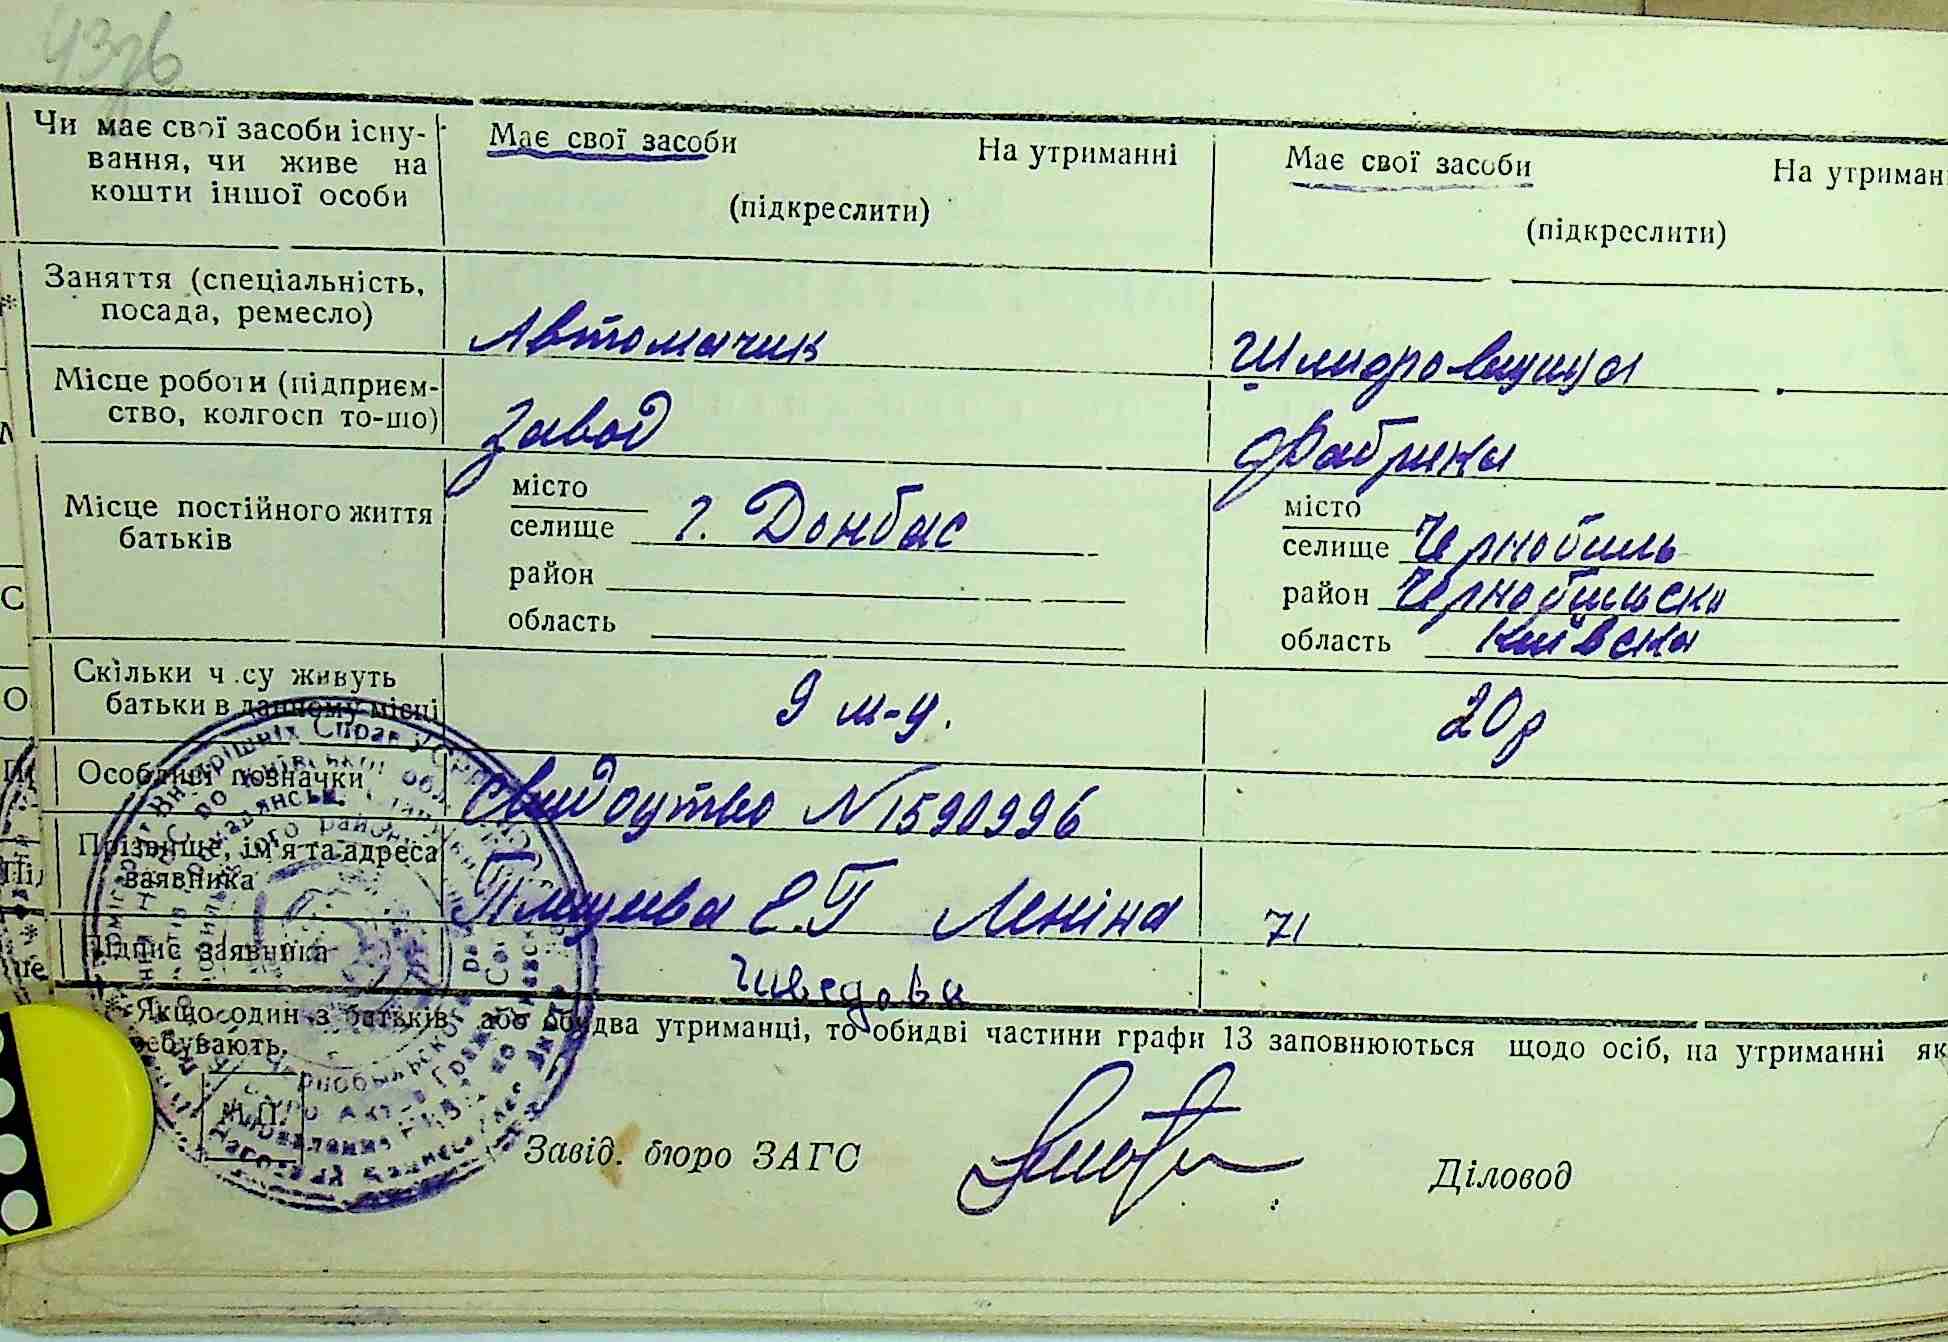 Чи має свої засоби існу-
вання, чи живе на
кошти іншої особи
Має свої засоби На утриманні
(підкреслити)
Має свої засоби На утриман
(підкреслити)
Заняття (спеціальність,
посада, ремесло)
Автоматчик
Місце роботи (підприєм-
ство, колгосп то-що)
Завод
Фабрика
Місце постійного життя
батьків
місто
селище г. Донбас
район
область
місто
селище Чернобиль
район Чернобильски
область Київска
Скільки ч су живуть
батьки в данному місці
9 м-ц.
20 р
Особливі позначки
Свидоцтво N 1590996
Прізвище, ім'я та адреса
заявника
Е.Г Леніна 71
Підпис заявника
* Якщо один з батьків або обидва утриманці, то обидві частини графи 13 заповнюються щодо осіб, на утриманні як
ребувають.
М.П.
Завід. бюро ЗАГС
Діловод